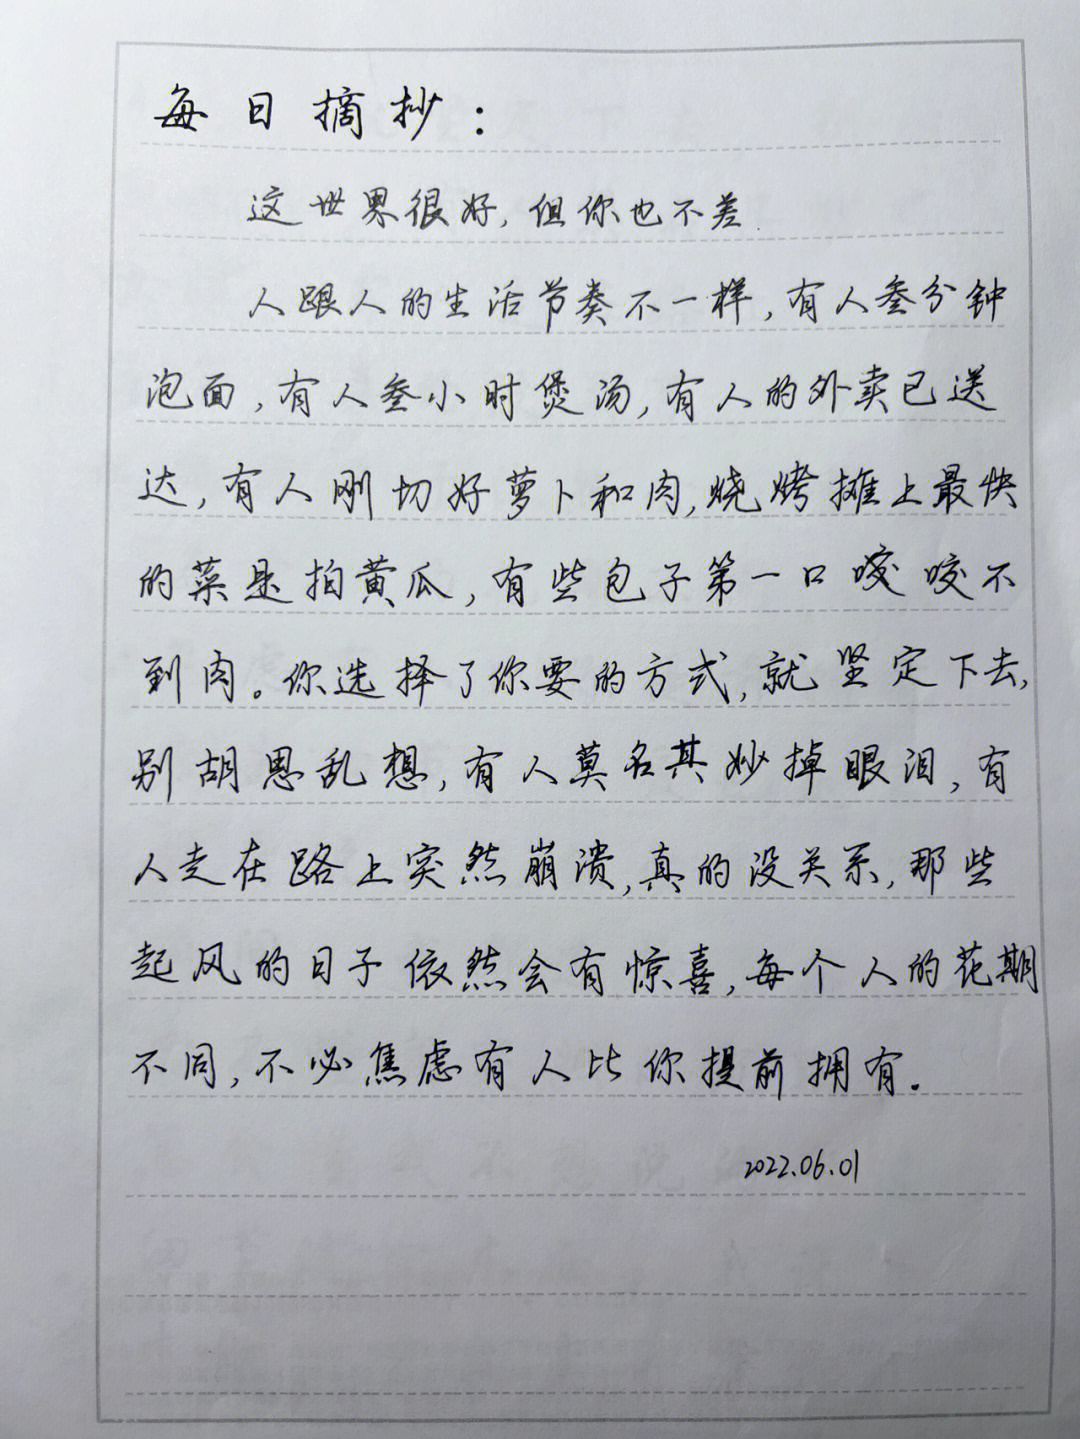 每日摘抄：
这世界很好，但你也不差.
人跟人的生活节奏不一样，有人叁分钟
泡面，有人叁小时煲汤，有人的外卖已送
达，有人刚切好萝卜和肉，烧烤摊上最快
的菜是拍黄瓜，有些包子第一口咬咬不
到肉。你选择了你要的方式，就坚定下去，
别胡思乱想，有人莫名其妙掉眼泪，有
人走在路上突然崩溃，真的没关系，那些
起风的日子依然会有惊喜，每个人的花期
不同，不必焦虑有人比你提前拥有.
2022.06.01